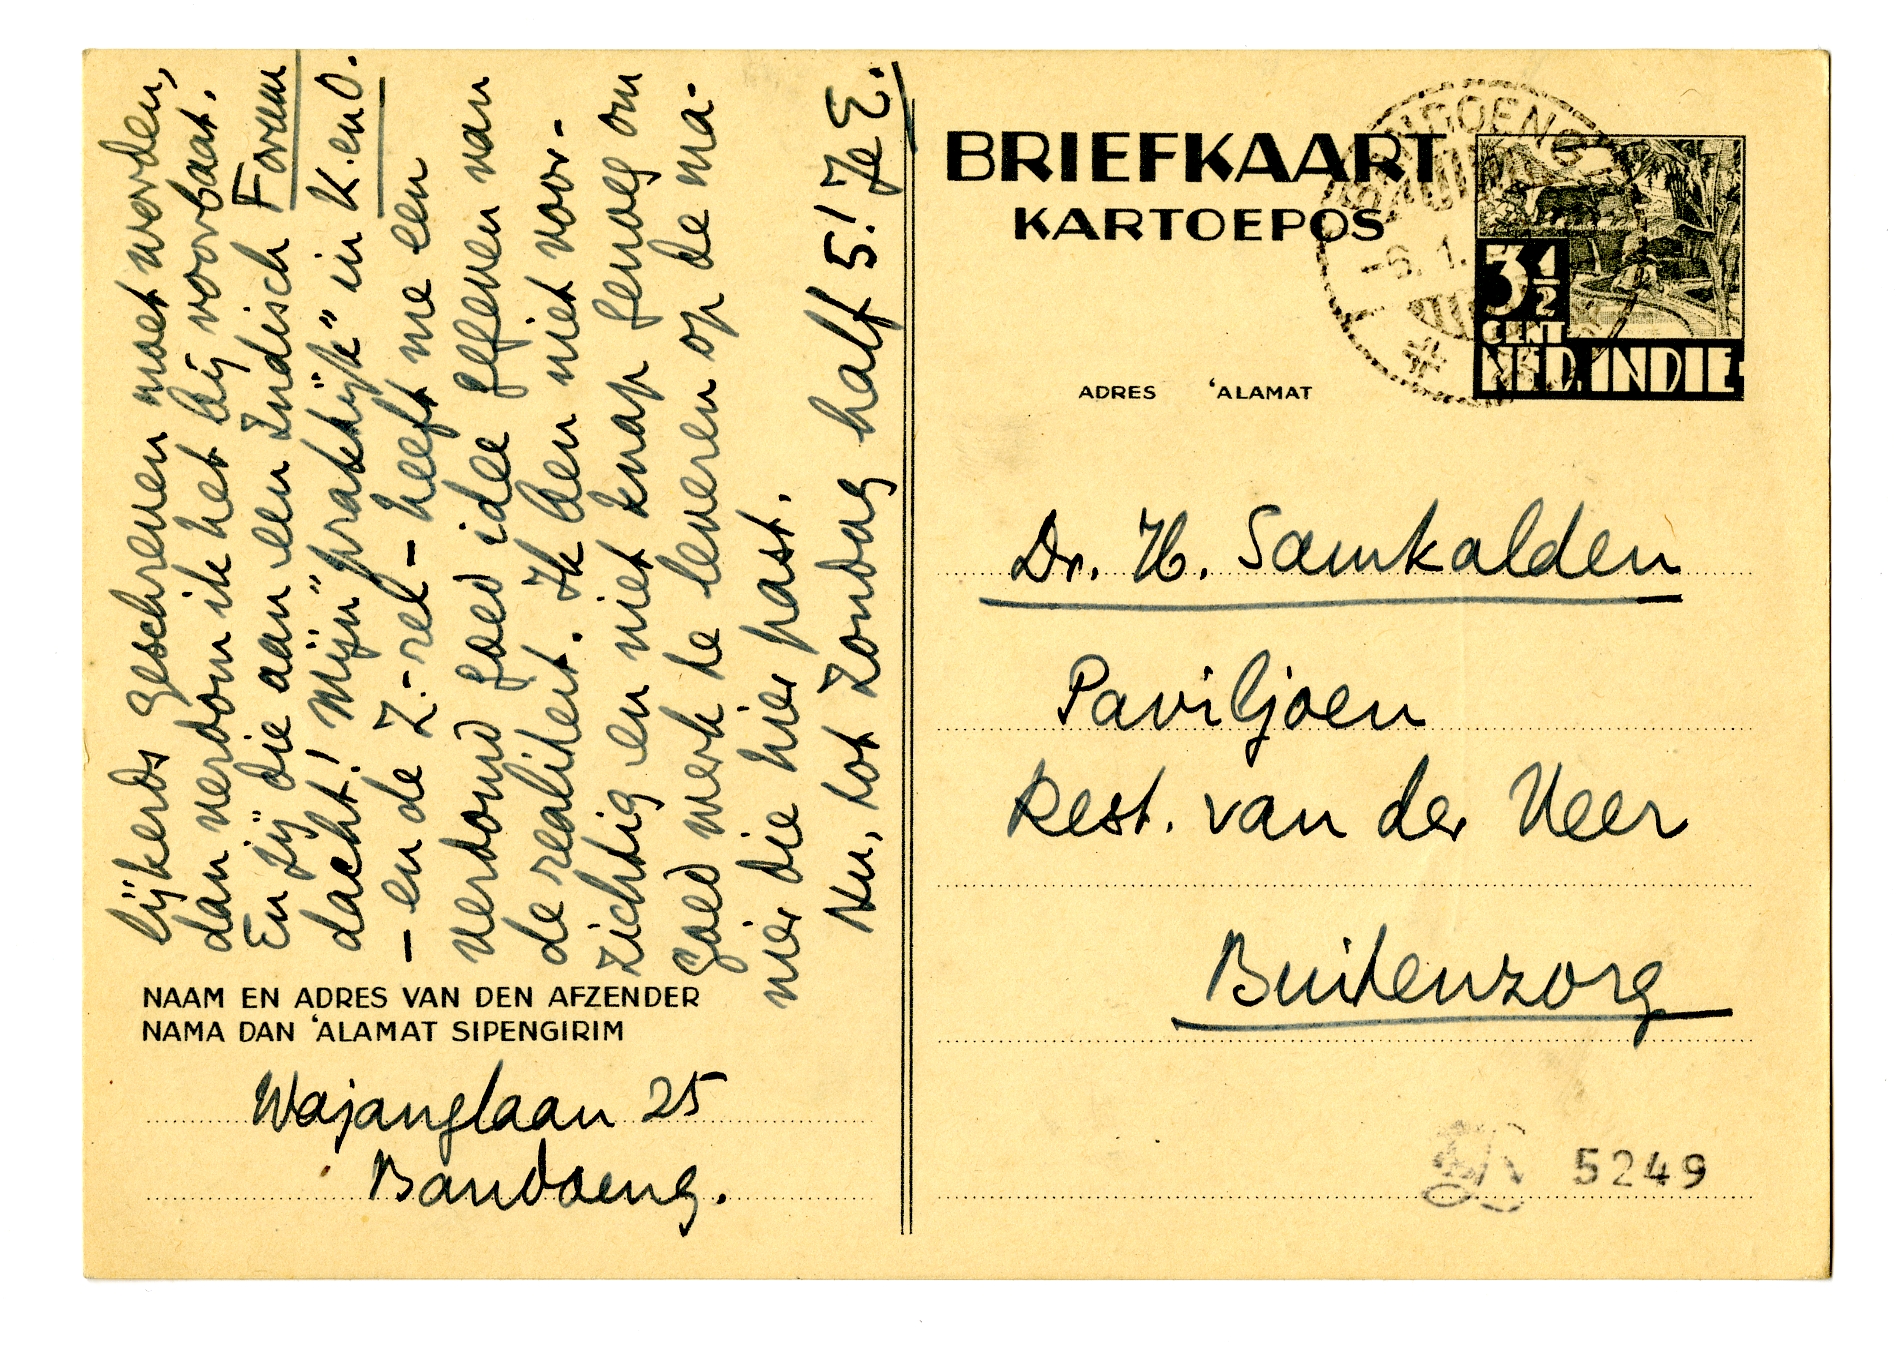 lijkerds geschreven moet worden,
dan verdom ik het bij voorbaat.
En zij die aan een Indisch Forum
dacht! Mijn "praktijk" in K. en O.
– en de Z.-rel – heeft me een
verdomd goed idee gegeven van
de realiteit. Ik ben niet voor-
zichtig en niet knap genoeg om
goed werk te leveren op de ma-
nier die hier past.
Nu, tot Zondag half 5! Je E.
NAAM EN ADRES VAN DEN AFZENDER
NAMA DAN ‘ALAMAT SIPENGIRIM
Wajanglaan 25
Bandoeng.
BRIEFKAART
KARTOEPOS
BANDOENG
6. 1.
3½
CENT
NED. INDIE
ADRES ‘ALAMAT
Dr. H. Samkalden
Paviljoen
Rest. van der Veer
Buitenzorg
5249